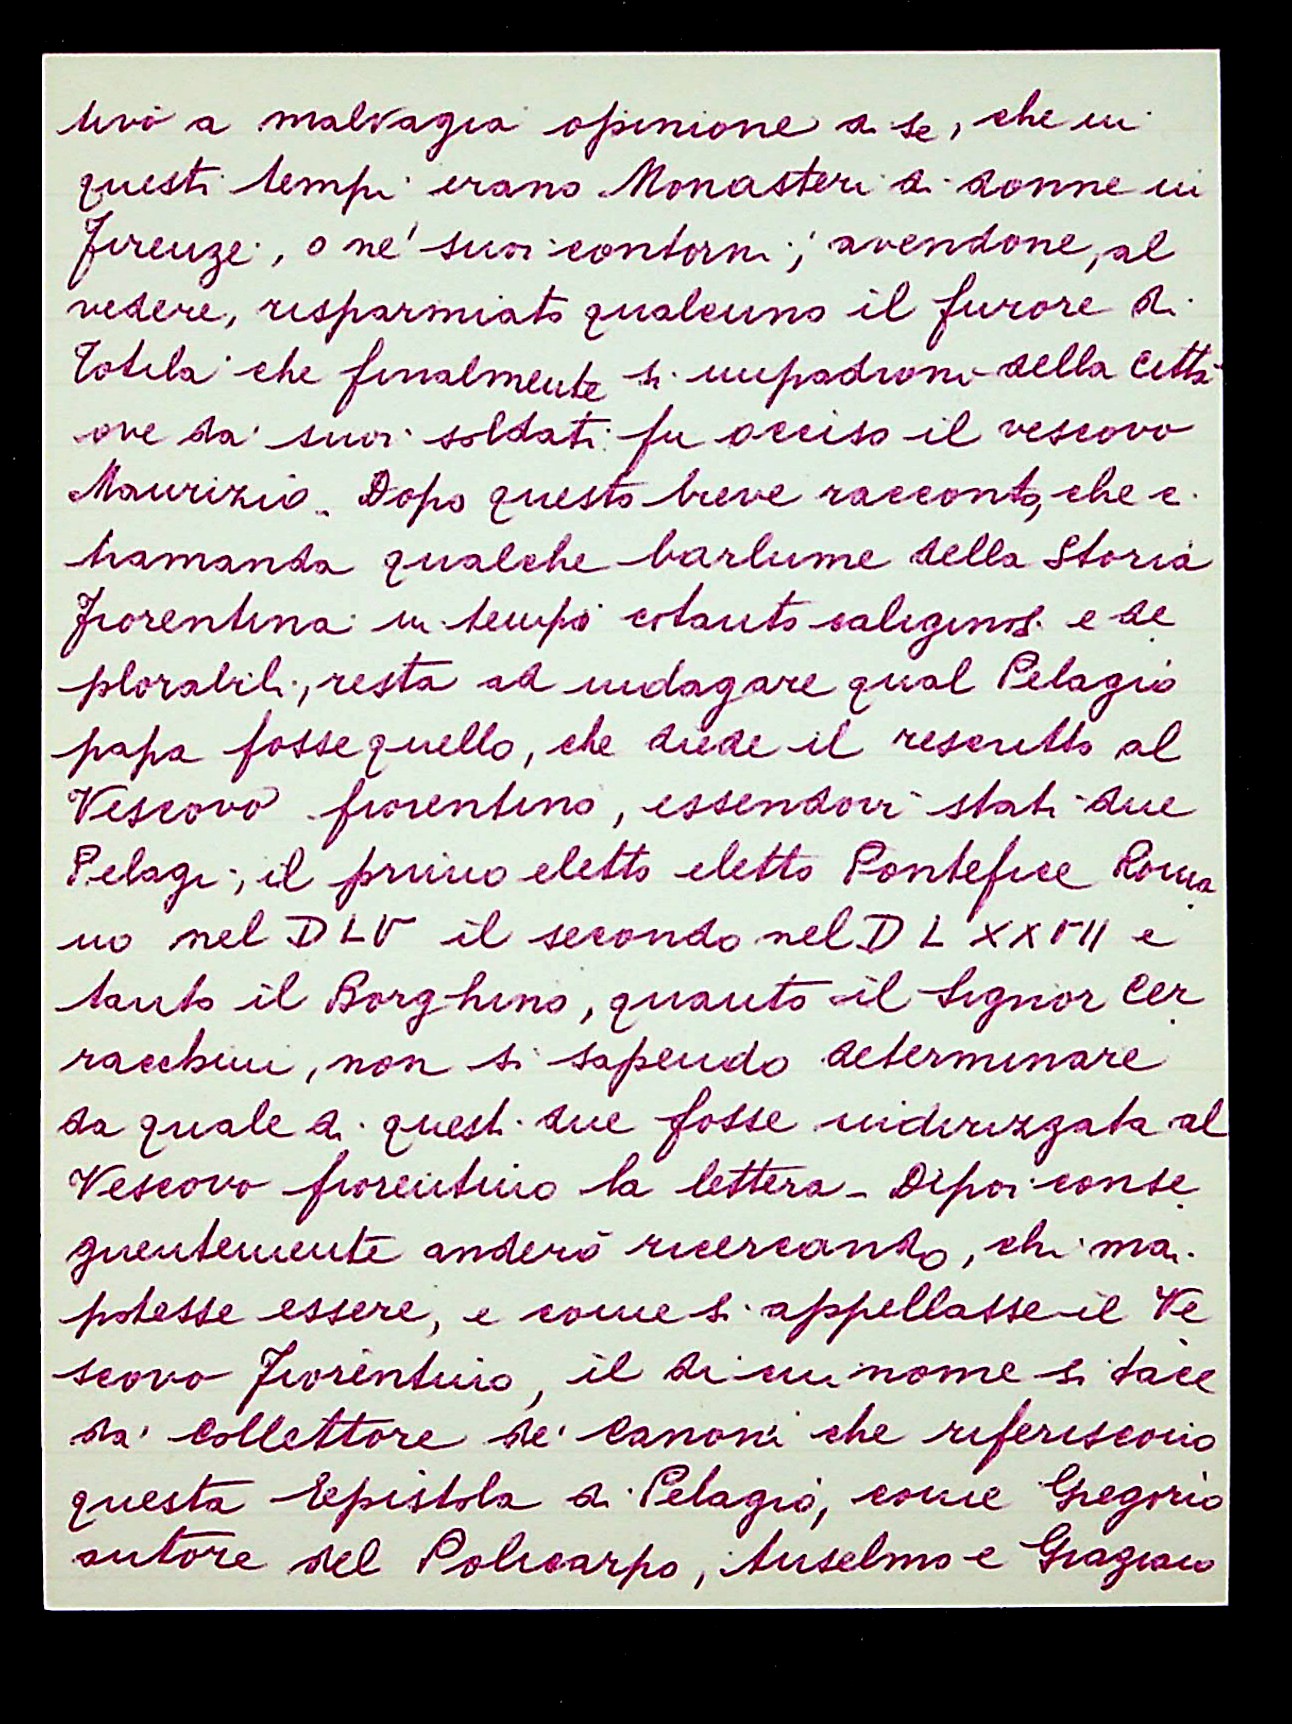 tivò a malvagia opinione di se, che in
questi tempi erano Monasteri di donne in
Firenze, o ne' suoi contorni; avendone, al
vedere, risparmiato qualcuno il furore di
Totila che finalmente si impadronì della città
ove da' suoi soldati fu occiso il vescovo
Maurizio. Dopo questo breve racconto, che ci
tramanda qualche barlume della Storia
Fiorentina in tempi cotanto caliginosi e de
plorabili, resta ad indagare qual Pelagio
papa fosse quello, che diede il rescritto al
Vescovo fiorentino, essendovi stati due
Pelagi; il primo eletto eletto Pontefice Roma
no nel DLV il secondo nel DLXXVII e
tanto il Borghino, quanto il Signor Cer
racchini, non si sapendo determinare
da quale di questi due fosse indirizzata al
Vescovo fiorentino la lettera. Dipoi conse
guentemente anderò ricercando, chi mai
potesse essere, e come si appellasse il Ve
scovo Fiorentino, il di cui nome si tace
da' Collettore de' Canoni che riferiscono
questa Epistola di Pelagio, come Gregorio
autore del Policarpo, Anselmo e Graziano